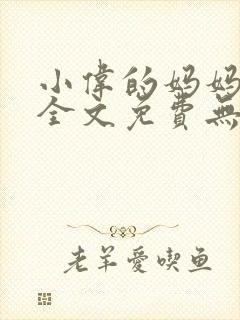 小偉的妈妈
全文免費無
老羊愛喫鱼